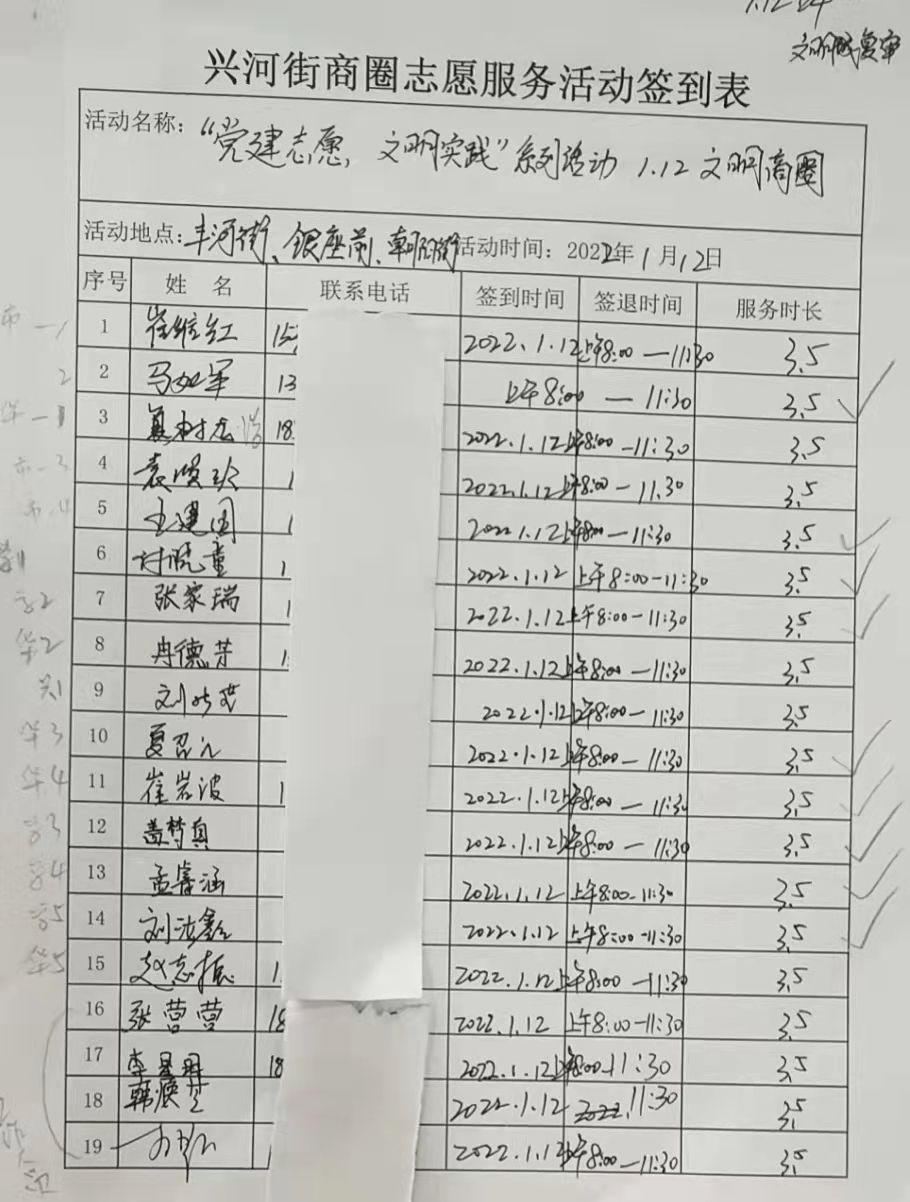 兴河街商圈志愿服务活动签到表
活动名称："党建志愿，文明实践"系列活动 1.12 文明商圈
活动地点：丰河街、银座前、朝阳街 活动时间：2022年1月12日
序号 姓 名 联系电话 签到时间 签退时间 服务时长
1 崔维红 15 2022.1.12 上午8:00—11:30 3.5
2 马 军 13 上午8:00 — 11:30 3.5
3 18 2022.1.12 上午8:00-11:30 3.5
4 袁 1 2022.1.12 上午8:00-11.30 3.5
5 王建国 1 2022.1.12 上午8:00-11:30 3.5
6 付晓童 1 2022.1.12 上午8:00-11:30 3.5
7 张家瑞 1 2022.1.12 上午8:00-11:30 3.5
8 冉德芳 1 2022.1.12 上午8:00-11:30 3.5
9 刘 2022.1.12 上午8:00-11:30 3.5
10 夏召 2022.1.12 上午8:00-11:30 3.5
11 崔岩波 1 2022.1.12 上午8:00-11:30 3.5
12 盖梦真 2022.1.12 上午8:00-11:30 3.5
13 孟睿涵 2022.1.12 上午8:00-11:30 3.5
14 刘浩鑫 2022.1.12 上午8:00-11:30 3.5
15 赵志振 1 2022.1.12 上午8:00-11:30 3.5
16 张营营 18 2022.1.12 上午8:00-11:30 3.5
17 李 18 2022.1.12 上午8:00-11:30 3.5
18 韩焕芝 2022.1.12 11:30 3.5
19 2022.1.12 上午8:00-11:30 3.5